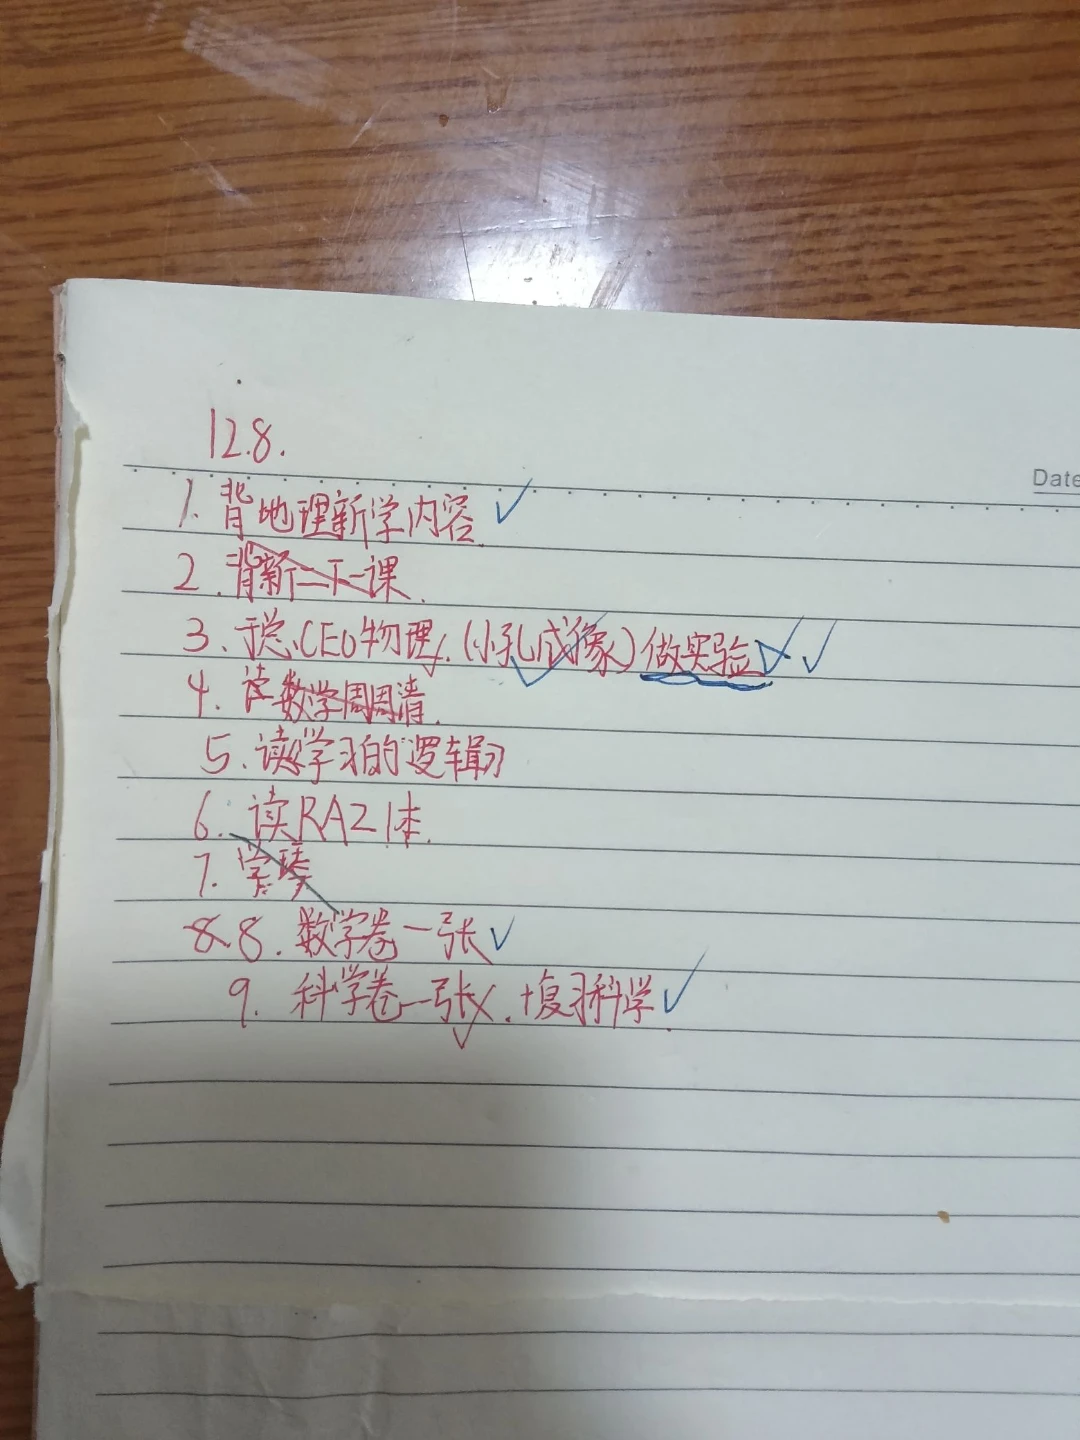 12.8.
Date
1. 背地理新学内容 ✓
2. 背新二下一课.
3. 听 CEO物理. (小孔成像) 做实验 ✓ ✓
4. 读数学周周清.
5. 读《学习的逻辑》
6. 读RAZ 1本.
7. 学琴
8. 8. 数学卷一张 ✓
9. 科学卷一张. +复习科学 ✓